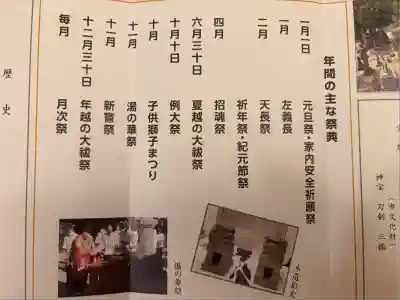 (市文化財)
神宝 刀剣 三振
年間の主な祭典
一月一日 元旦祭・家内安全祈願祭
一月 左義長
二月 天長祭
祈年祭・紀元節祭
四月 招魂祭
六月三十日 夏越の大祓祭
十月十日 例大祭
十月 子供獅子まつり
十一月 湯の華祭
十一月 新嘗祭
十二月三十日 年越の大祓祭
毎月 月次祭
湯の華祭
歴史